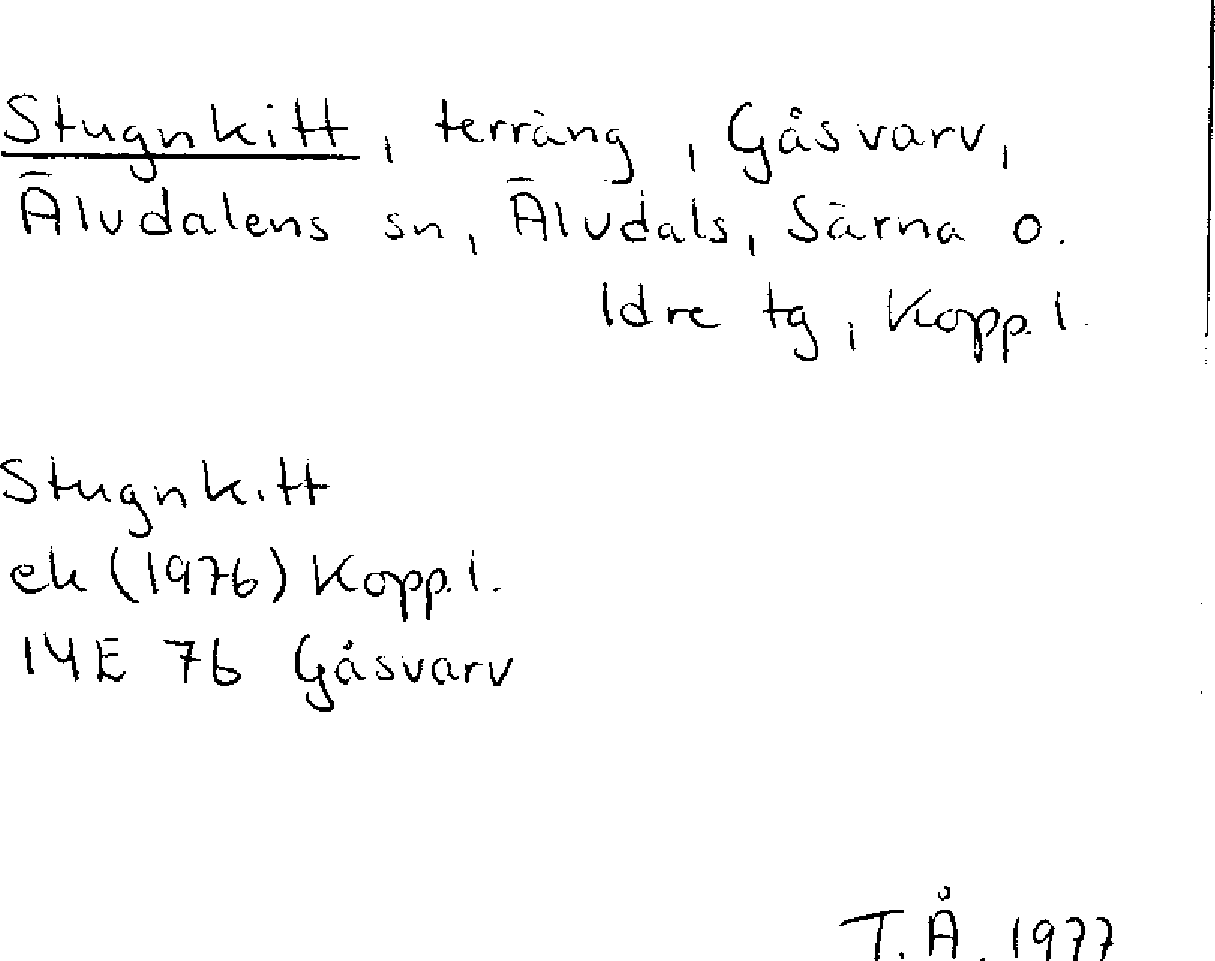 Stugnkitt, terräng, Gåsvarv,
Älvdalens sn, Älvdals, Särna o.
Idre tg, Kopp. l.
Stugnkitt
ek (1976) Kopp. l.
14E 7b Gåsvarv
T. Å. 1977